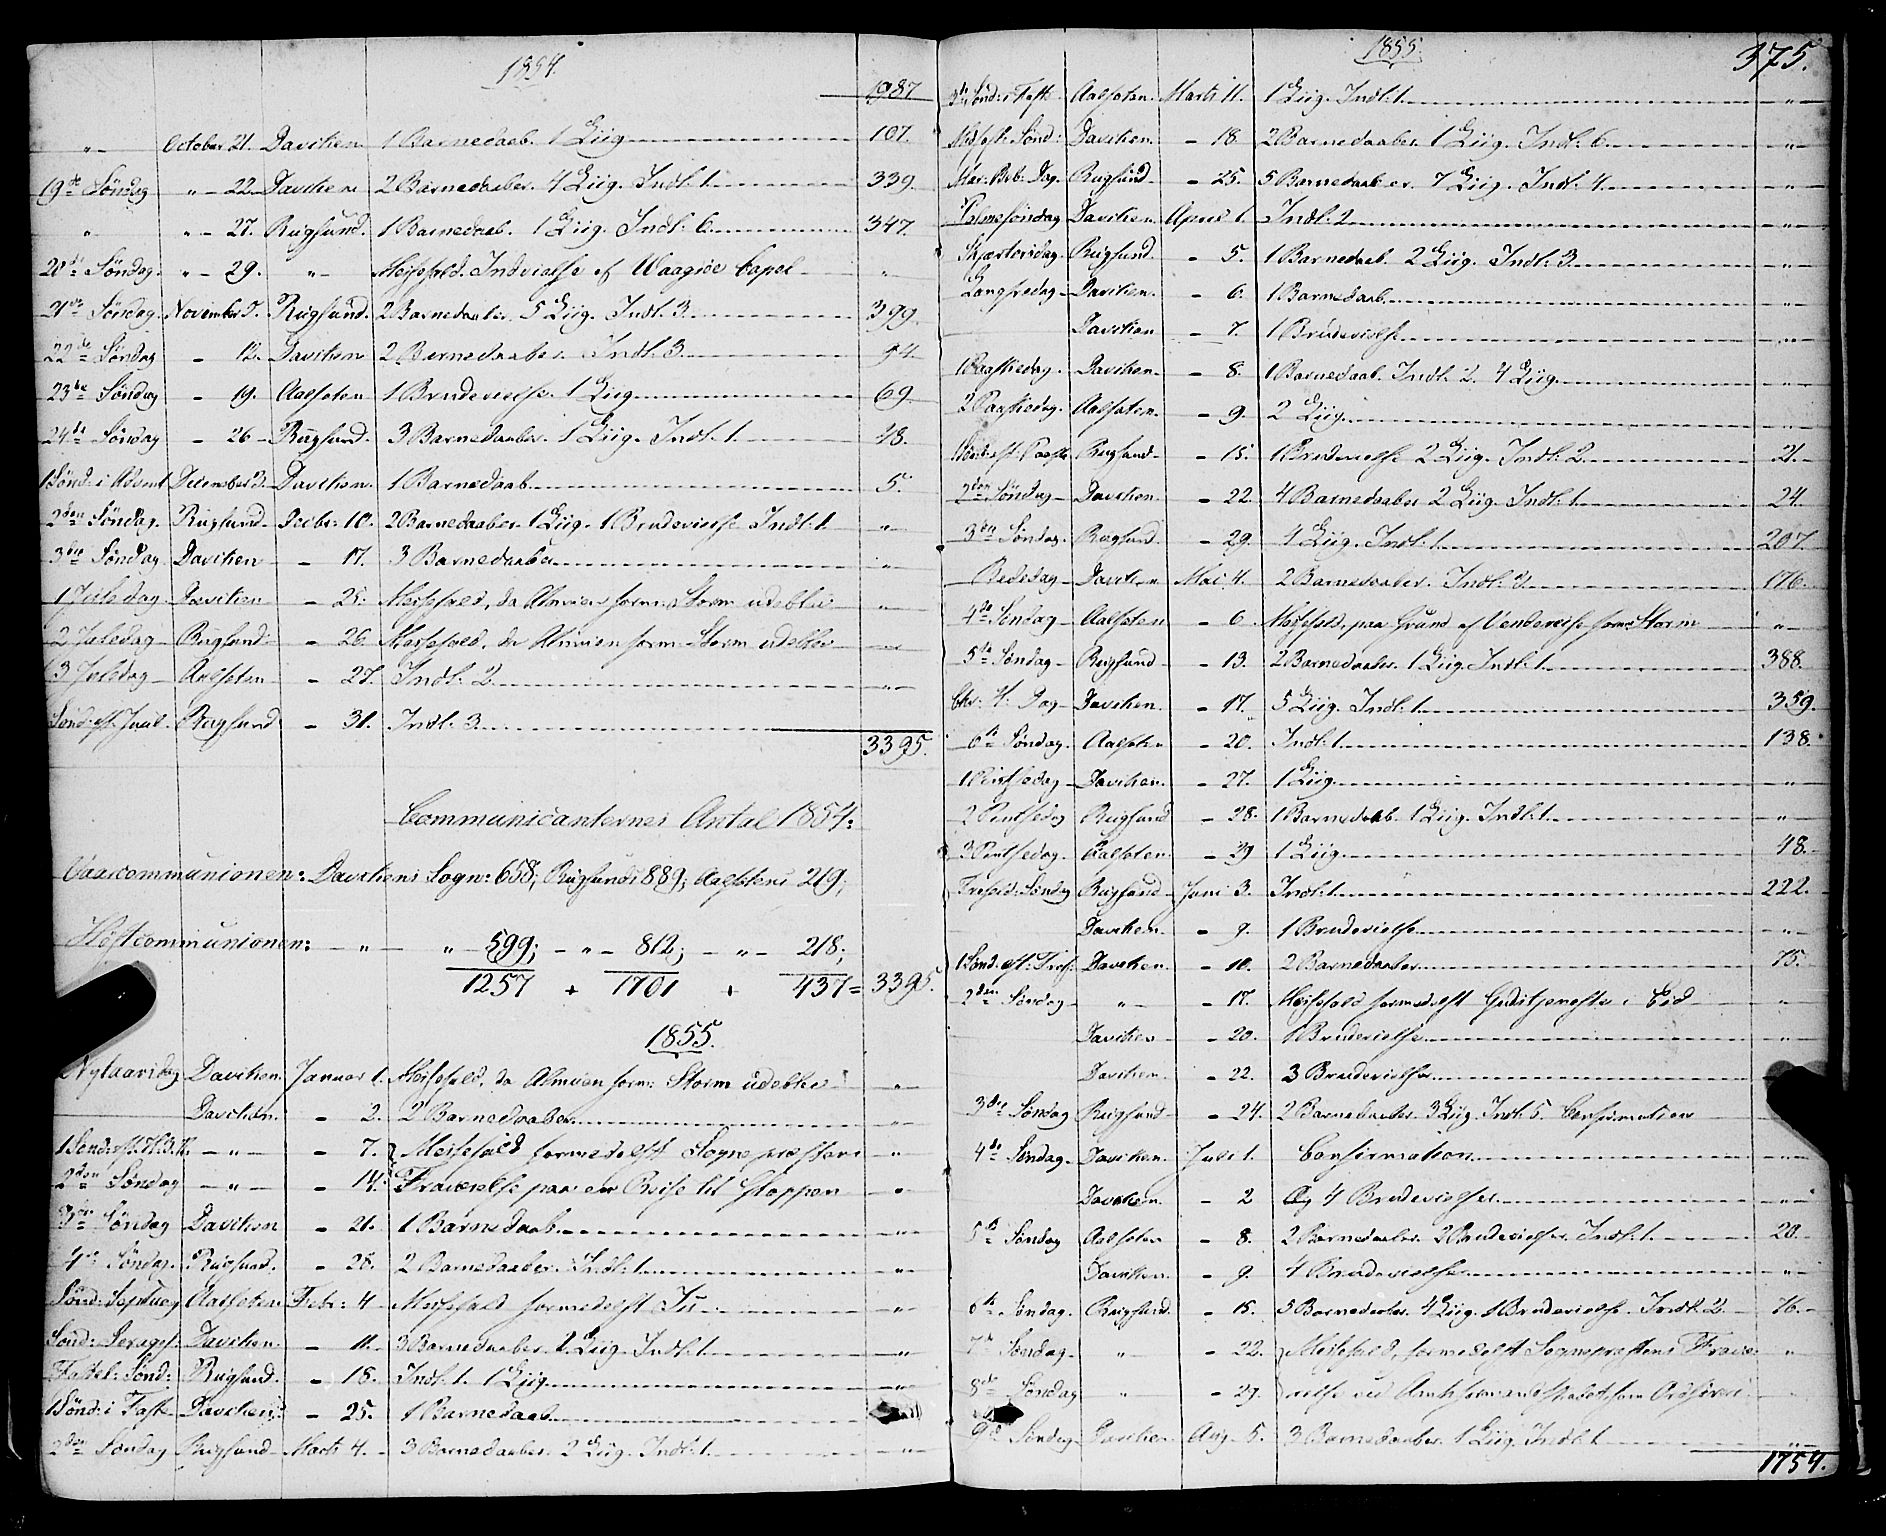 1854.
1987
" October 21. Daviken 1 Barnedaab. 1 Liig 107.
19de Søndag " - 22. Daviken 2 Barnedaaber. 4 Liig. Indl: 1. 339.
" " - 27. Rugsund. 1 Barnedaab. 1 Liig. Indl: 6. 347.
20de Søndag. " - 29. " Messefald. Indvielse af Vaagsøe Capel "
21de Søndag. November 5. Rugsund. 2 Barnedaaber. 5 Liig. Indl: 3. 399.
22de Søndag - 12. Daviken 2 Barnedaaber. Indl: 3. 94.
23de Søndag - 19. Aalfoten 1 Brudevielse. 1 Liig 69.
24de Søndag - 26 Rugsund. 3 Barnedaaber. 1 Liig. Indl: 1. 48.
1 Sønd: i Advent December 3. Daviken. 1 Barnedaab. 5.
2den Søndag. Rugsund. Decbr: 10. 2 Barnedaaber. 1 Liig. 1 Brudevielse Indl: 1 "
3die Søndag. Daviken - 17. 3 Barnedaaber "
1 Juledag. Daviken - 25. Messefald, da Almuen form: Storm udeblev "
2 Juledag Rugsund - 26. Messefald, da Almuen form: Storm udeblev "
3 Juledag Aalfoten - 27. Indl: 2. "
Sønd: eft. Juul. Rugsund - 31. Indl: 3.
3395.
Communicanternes Antal 1854:
Vaarcommunionen: Davikens Sogn: 658; Rugsunds 889; Aalfotens 219;
Høstcommunionen: " " 599; - " - 812; - " - 218;
1257 + 1701 + 437 = 3395.
1855.
Nytaarsdag Daviken. Januar 1. Messefald, da Almuen form: Storm udeblev "
Daviken. - 2. 2 Barnedaaber "
1 Sønd: eft. H. 3 K. - " - - 7. Messefald formedelst Sognepræstens "
2den Søndag - " - - 14. Fraværelse paa en Reise til Gloppen "
3die Søndag Daviken - 21. 1 Barnedaab. "
4de Søndag. Rugsund. - 28. 2 Barnedaaber. Indl: 1. "
Sønd: Septuag Aalfoten Febr: 4 Messefald formedelst Iis "
Sønd: Sexages: Daviken - 11. 3 Barnedaaber. 1 Liig. Indl: 1. "
Fastel: Sønd: Rugsund. - 18. Indl: 1. 1 Liig. "
1 Sønd: i Faste Daviken - 25. 1 Barnedaab
2den Søndag Rugsund Marts 4. 3 Barnedaaber. 2 Liig. Indl: 1. "
1855.
375.
3die Sønd: i Faste Aalfoten. Marts 11. 1 Liig. Indl: 1. "
Midfast: Sønd: Daviken. - 18. 2 Barnedaaber. 1 Liig. Indl: 6. "
Mar: Beb: Dag. Rugsund - 25. 5 Barnedaaber. 7 Liig. Indl: 4. "
Palmesøndag Daviken April 1. Indl: 2. "
Skjærtorsdag. Rugsund. - 5. 1 Barnedaab. 2 Liig. Indl: 3. "
Langfredag Daviken. - 6. 1 Barnedaab. "
Daviken - 7. 1 Brudevielse. "
1 Paaskedag. Daviken - 8. 1 Barnedaab. Indl: 2. 4 Liig. "
2 Paaskedag. Aalfoten. - 9. 2 Liig. "
1 Sønd: eft: Paaske Rugsund - 15. 1 Brudevielse 2 Liig. Indl: 2. 21.
2den Søndag Daviken - 22. 4 Barnedaaber 2 Liig. Indl: 1. 24.
3die Søndag. Rugsund - 29. 4 Liig. Indl: 1. 207.
Bededag Daviken Mai 4. 2 Barnedaaber. Indl: 3. 176.
4de Søndag Aalfoten - 6. Messefald, paa Grund af Vendereise form: Storm "
5te Søndag Rugsund - 13. 2 Barnedaaber. 1 Liig. Indl: 1. 388.
Chr: H: Dag Daviken. - 17. 5 Liig. Indl: 1. 359.
6te Søndag. Aalfoten - 20. Indl: 1. 138.
1 Pintsedag Daviken. - 27. 1 Liig. "
2 Pintsedag Rugsund - 28. 1 Barnedaab. 1 Liig. Indl: 1. "
3 Pintsedag. Aalfoten. - 29 1 Liig. 48.
Trefold: Søndag Rugsund Juni 3. Indl: 1. 222.
Daviken. - 9. 1 Brudevielse. "
1 Sønd: eft: Tref: Daviken - 10. 2 Barnedaaber. 75.
2den Søndag " - 17. Messefald formedelst Gudstjeneste i Eid "
Daviken - 20. 1 Brudevielse "
Daviken. - 22. 3 Brudevielser.
3die Søndag Rugsund - 24. 2 Barnedaaber. 3 Liig. Indl: 5. Confirmation
4de Søndag. Daviken. Juli 1. Confirmation "
Daviken - 2 Og 4 Brudevielser "
5te Søndag Aalfoten - 8. 2 Barnedaaber. 2 Brudevielser. Indl: 1. 20.
Daviken. - 9. 4 Brudevielser. "
6te Søndag. Rugsund. - 15. 5 Barnedaaber. 4 Liig. 1 Brudevielse. Indl: 2. 76.
7de Søndag. " - 22. Messefald, formedelst Sognepræstens Fravæ= "
8de Søndag " - 29. relse ved Amtsformandskabet som Ordfører "
9de Søndag Daviken Aug. 5. 3 Barnedaaber. 1 Liig. Indl: 1 "
1754.